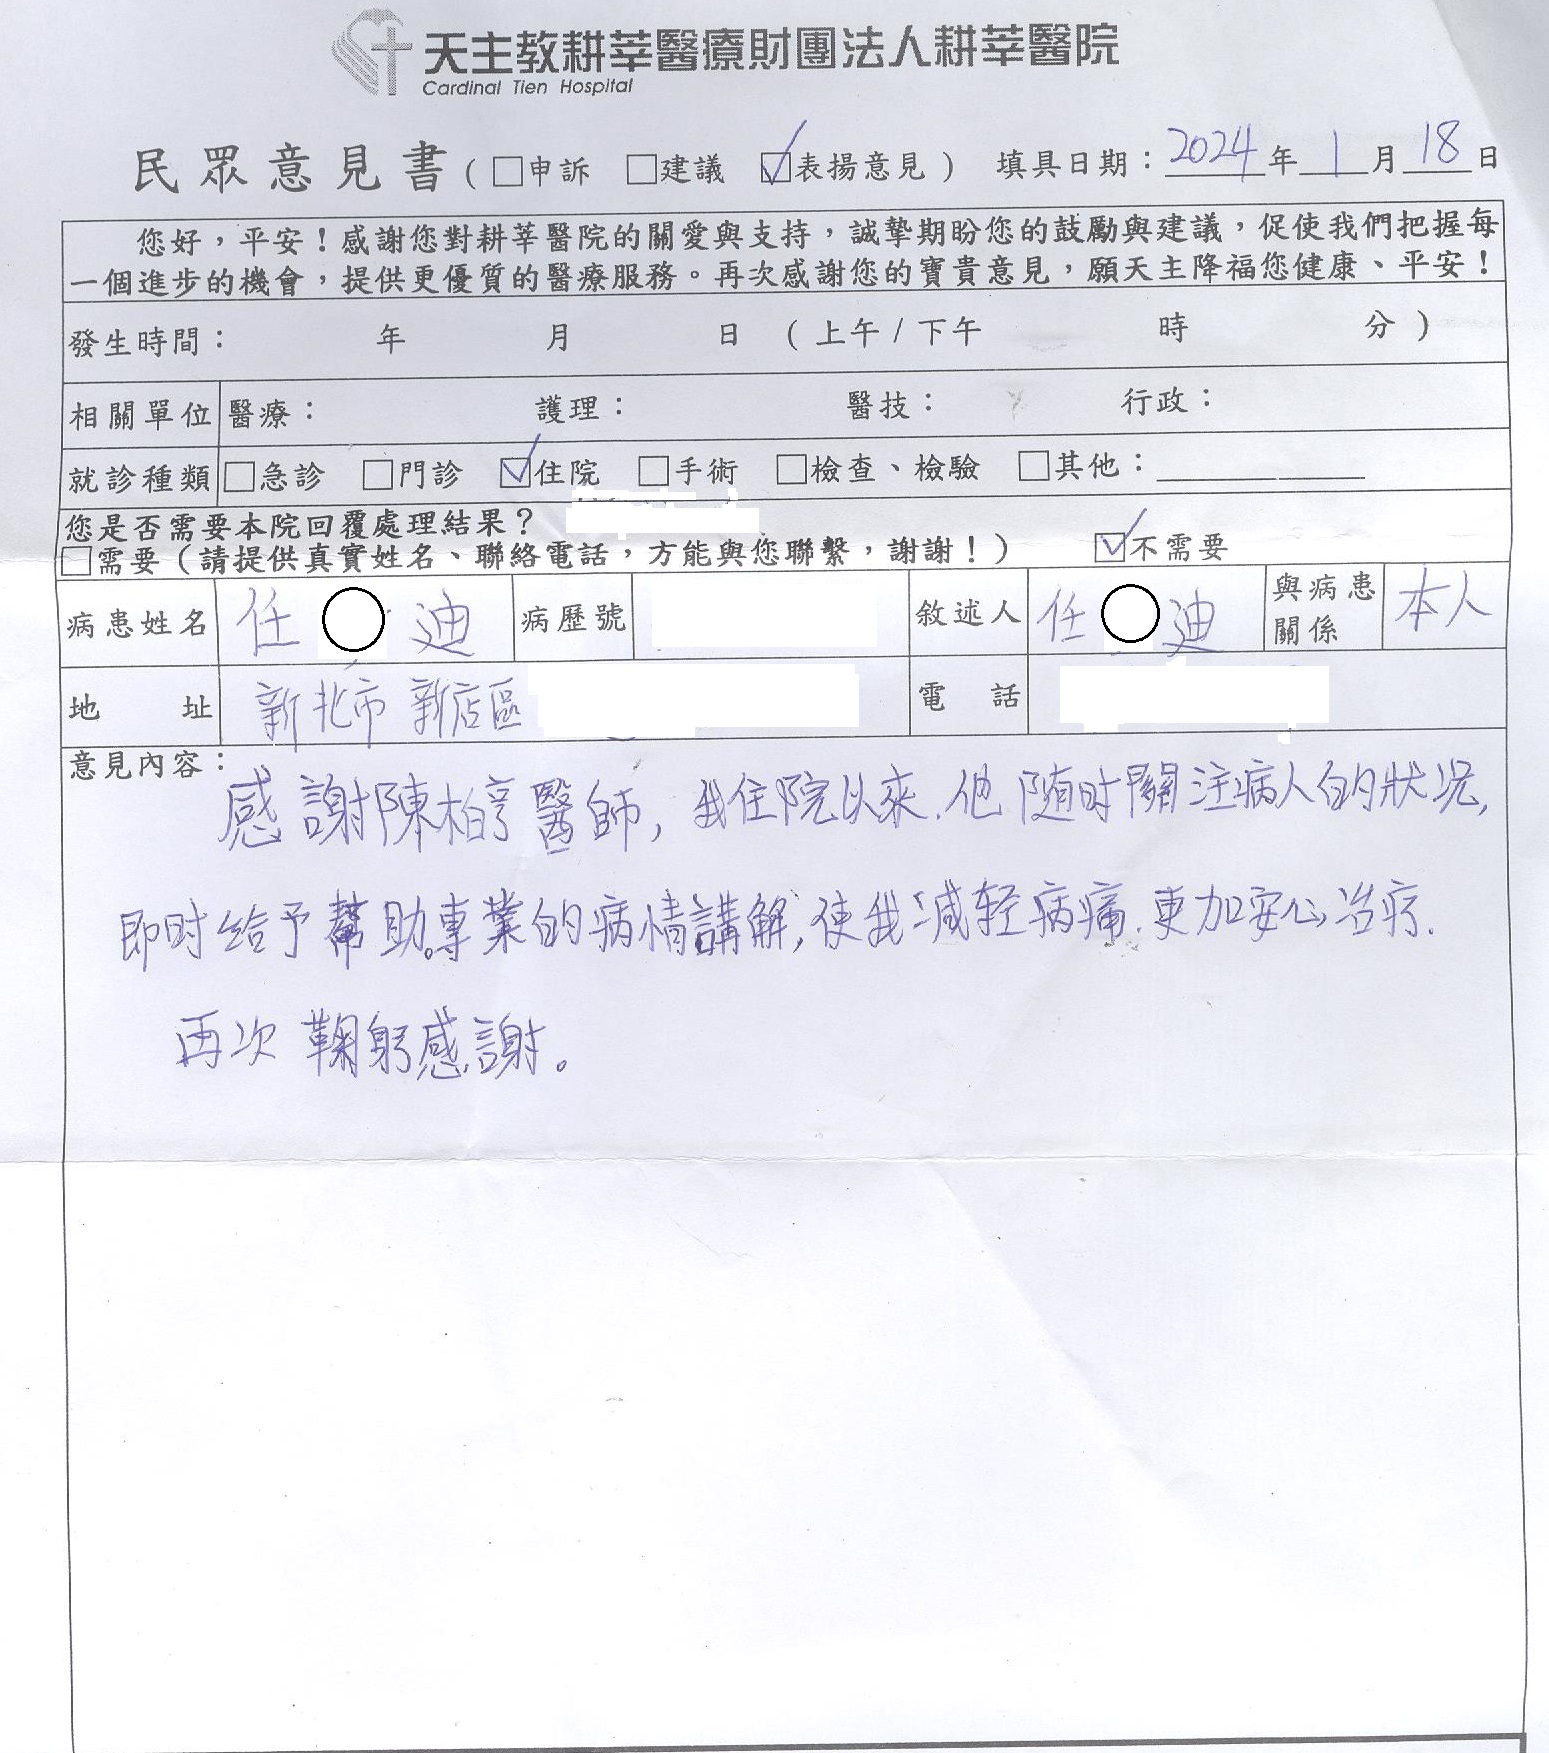 天主教耕莘醫療財團法人耕莘醫院
Cardinal Tien Hospital
民眾意見書(□申訴 □建議 ☑表揚意見) 填具日期：2024年1月18日
您好，平安！感謝您對耕莘醫院的關愛與支持，誠摯期盼您的鼓勵與建議，促使我們把握每
一個進步的機會，提供更優質的醫療服務。再次感謝您的寶貴意見，願天主降福您健康、平安！
發生時間： 年 月 日 (上午/下午 時 分)
相關單位 醫療： 護理： 醫技： 行政：
就診種類 □急診 □門診 ☑住院 □手術 □檢查、檢驗 □其他：
您是否需要本院回覆處理結果？
□需要(請提供真實姓名、聯絡電話，方能與您聯繫，謝謝！) ☑不需要
病患姓名 任○迪 病歷號 敘述人 任○迪 與病患關係 本人
地址 新北市新店區 電話
意見內容：
感謝陳柏亨醫師, 我住院以來.他随时關注病人的狀况,
即时给予幫助。專業的病情講解,使我减轻病痛.更加安心治疗.
再次鞠躬感謝。